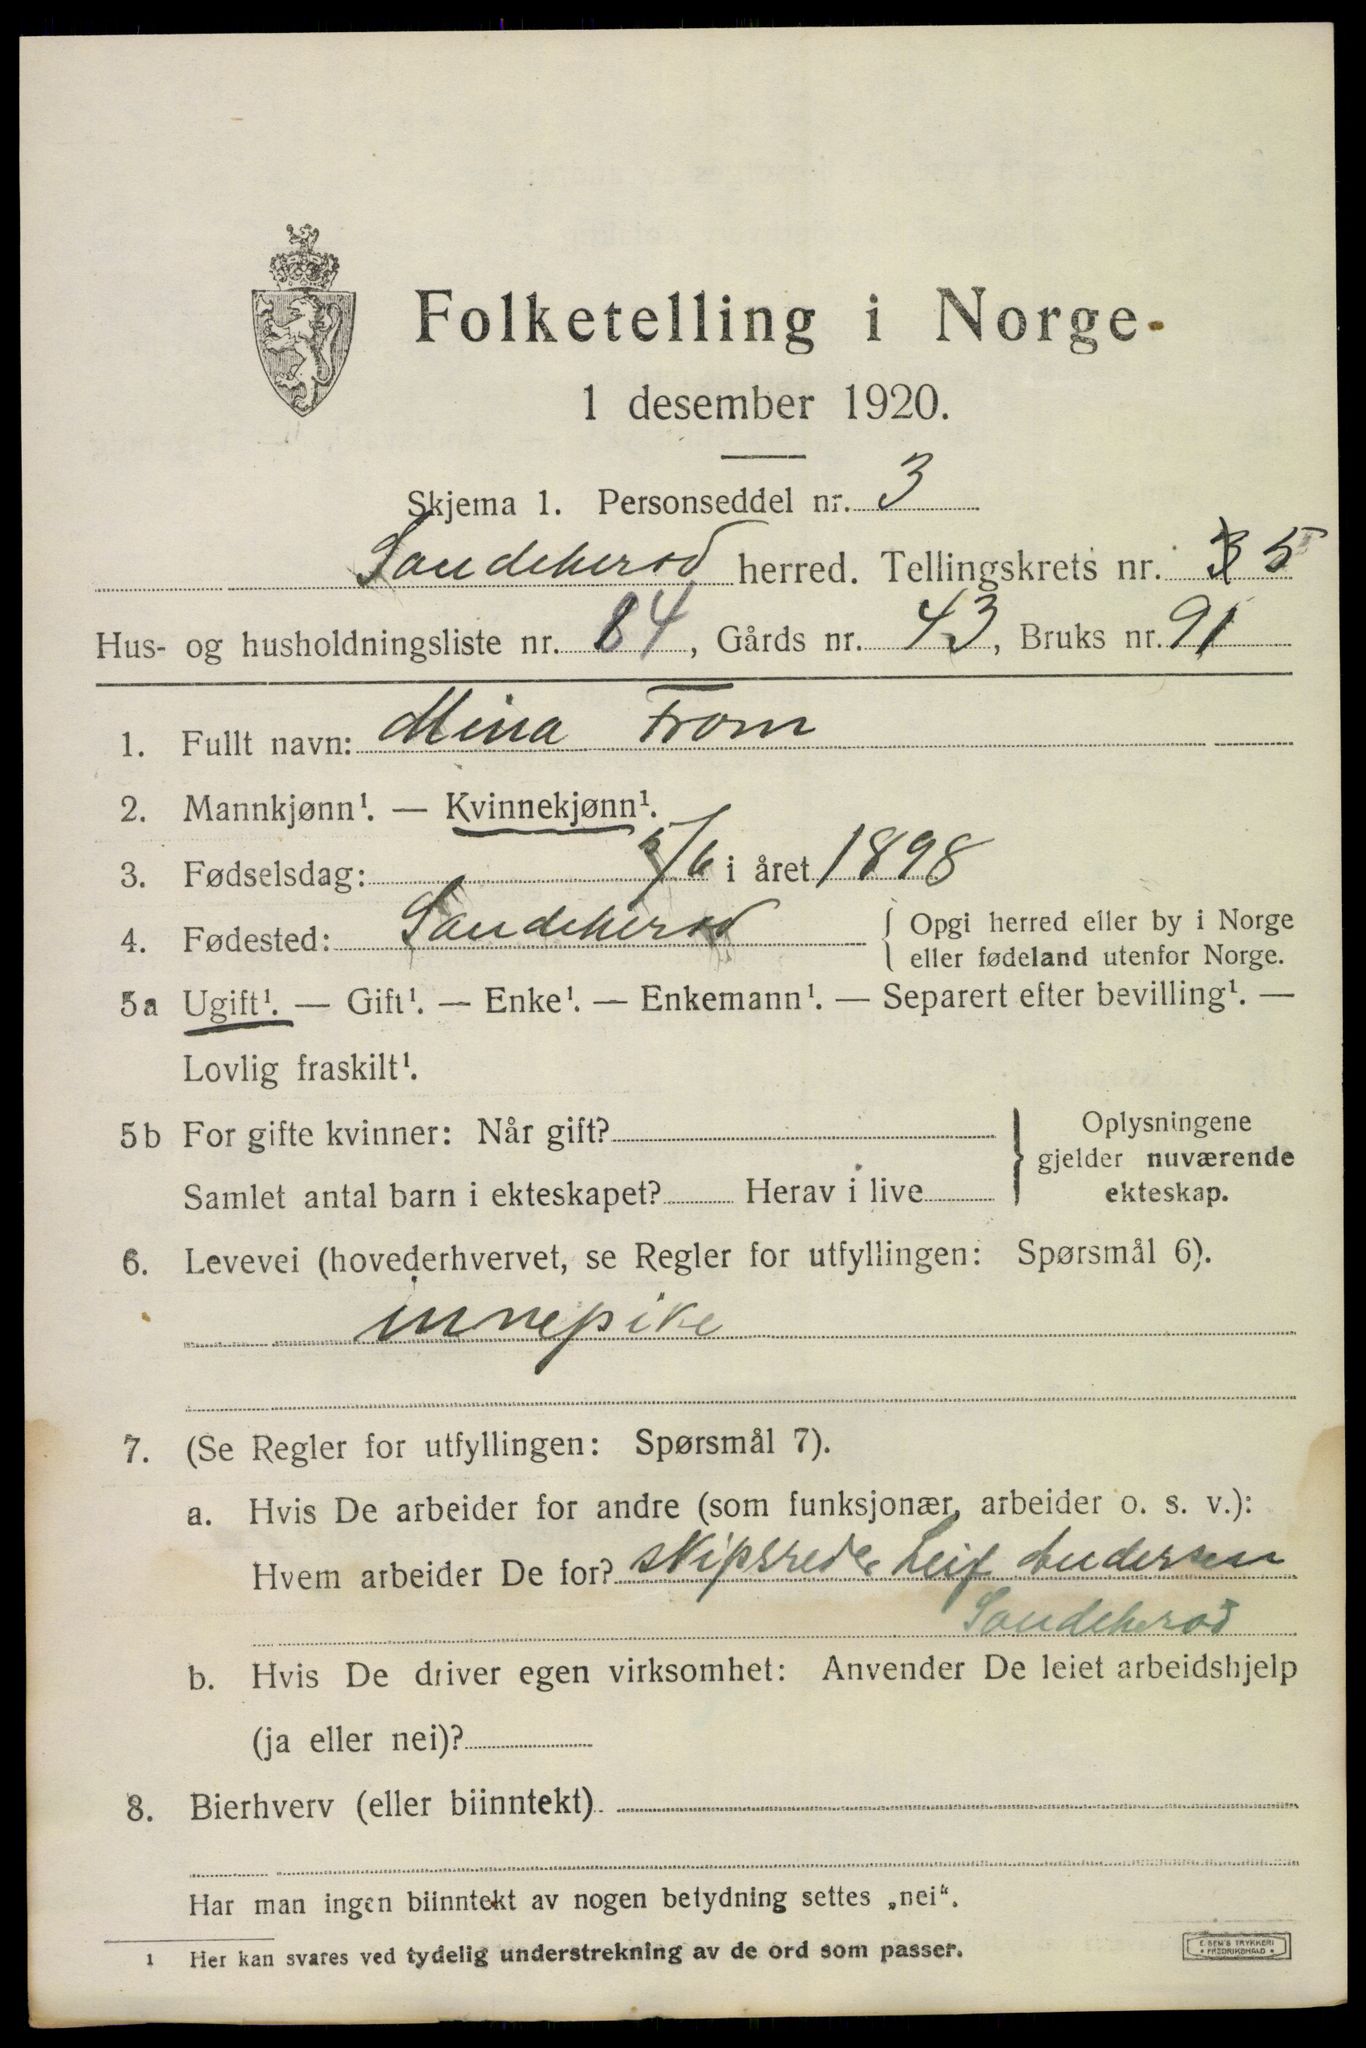 Folketelling i Norge.
1 desember 1920.
Skjema 1. Personseddel nr. 3
Sandeherod herred. Tellingskrets nr. 3 5
Hus- og husholdningsliste nr. 84, Gårds nr. 43, Bruks nr. 91
1. Fullt navn: Mina From
2. Mannkjønn¹. — Kvinnekjønn¹.
3. Fødselsdag: 5/6 i året 1898
4. Fødested: Sandeherod { Opgi herred eller by i Norge
eller fødeland utenfor Norge.
5a Ugift¹. — Gift¹. — Enke¹. — Enkemann¹. — Separert efter bevilling¹. —
Lovlig fraskilt¹.
5b For gifte kvinner: Når gift? } Oplysningene
gjelder nuværende
Samlet antal barn i ekteskapet? Herav i live ekteskap.
6. Levevei (hovederhvervet, se Regler for utfyllingen: Spørsmål 6).
innepike
7. (Se Regler for utfyllingen: Spørsmål 7).
a. Hvis De arbeider for andre (som funksjonær, arbeider o. s. v.):
Hvem arbeider De for? skipsreder Leif Andersen
Sandeherod
b. Hvis De driver egen virksomhet: Anvender De leiet arbeidshjelp
(ja eller nei)?
8. Bierhverv (eller biinntekt)
Har man ingen biinntekt av nogen betydning settes „nei“.
¹ Her kan svares ved tydelig understrekning av de ord som passer.
E. SEM'S TRYKKERI
FREDRIKSHALD